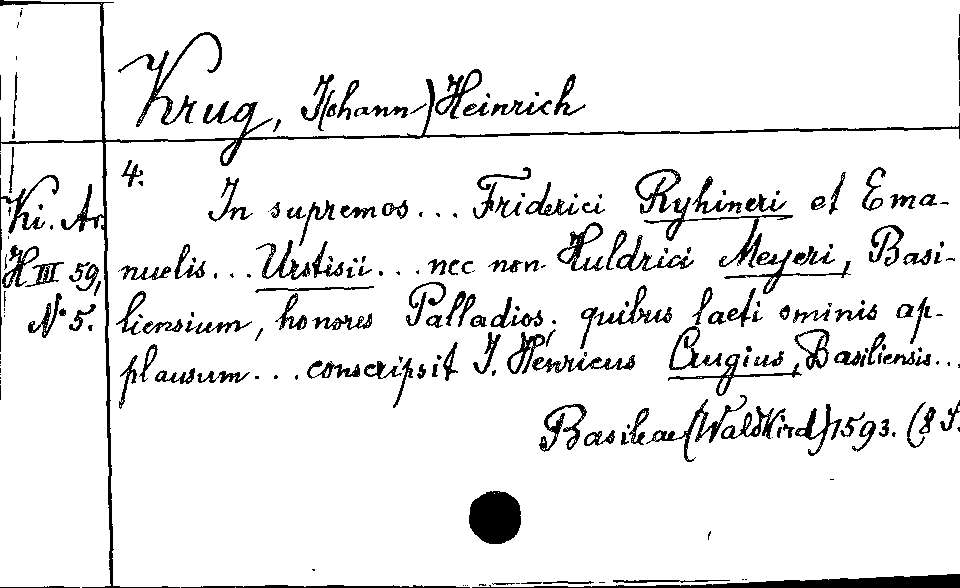 Krug, J(ohann) Heinrich
4:
Ki. Ar.
H III 59,
No 5.
In supremos... Friderici Ryhineri et Ema-
nuelis... Urstisii... nec non Huldrici Meyeri, Basi-
liensium, honores Palladios, quibus laeti ominis ap-
plausum... conscripsit J. Henricus Crugius, Basiliensis...
Basileae (Waldkirch) 1593. (8 S.